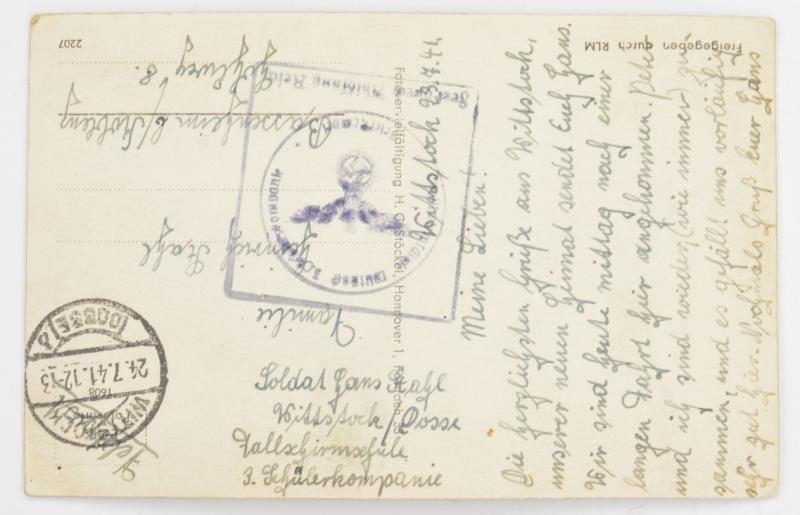 Wittstock 23.7.41.
Meine Lieben!
Die herzlichsten Grüße aus Wittstock,
unserer neuen Heimat sendet Euch Hans.
Wir sind heute mittag nach einer
langen Fahrt hier angekommen. Peter
und ich sind wieder (wie immer) zu-
sammen, und es gefällt uns vorläufig
sehr gut hier. Nochmals Gruß Euer Hans
Soldat Hans Stahl
Wittstock/Dosse
Fallschirmschule
3. Schülerkompanie
Familie
Heinrich Stahl
Bassenheim b/Koblenz
8.
WITTSTOCK
24.7.41.12-13
(DOSSE)
Freigegeben durch RLM
2207
H. C. Stöckel, Hannover 1,
1608